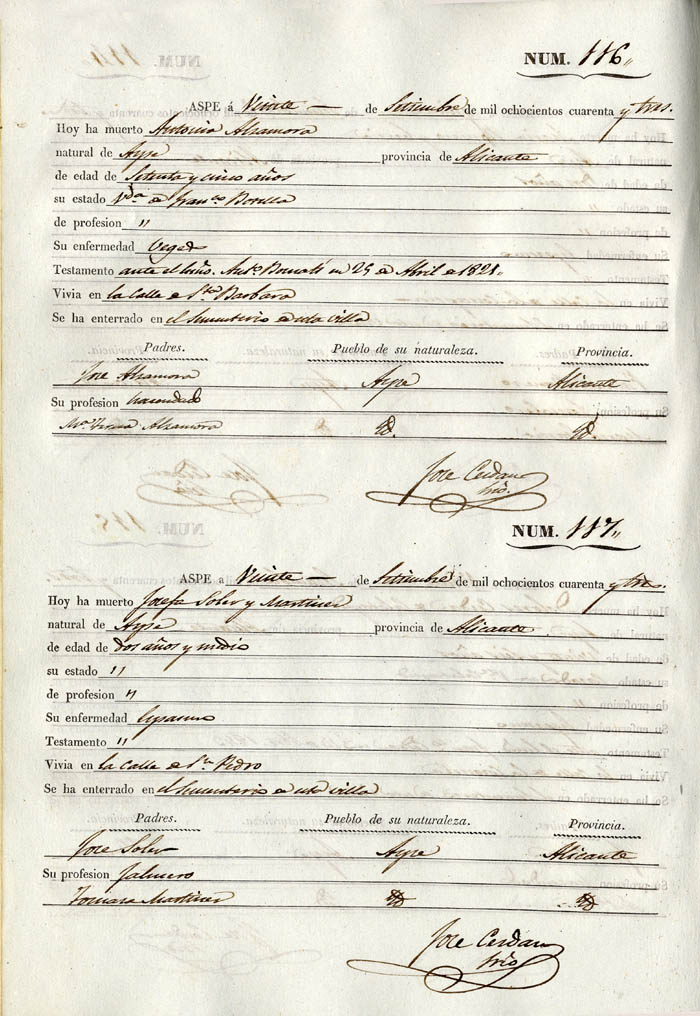 NUM. 116.
ASPE á Veinte de Setiembre de mil ochocientos cuarenta y tres.
Hoy ha muerto Antonia Alzamora
natural de Aspe provincia de Alicante
de edad de Setenta y cinco años
su estado Vda. de Franco. Botella
de profesion "
Su enfermedad Veged
Testamento ante el Esno. Anto. en 25 de Abril de 1821.
Vivia en la Calle de Sta. Barbara
Se ha enterrado en el Sementerio de esta villa
Padres. Pueblo de su naturaleza. Provincia.
Jose Alzamora Aspe Alicante
Su profesion hacendado
Ma. Teresa Alzamora Id. Id.
Jose Cerdan
Srio.
NUM. 117.
ASPE a Veinte de Setiembre de mil ochocientos cuarenta y tres.
Hoy ha muerto Josefa Soler y Martinez
natural de Aspe provincia de Alicante
de edad de dos años y medio
su estado "
de profesion "
Su enfermedad
Testamento "
Vivia en la Calle de Sn. Pedro
Se ha enterrado en el Sementerio de esta villa
Padres. Pueblo de su naturaleza. Provincia.
Jose Soler Aspe Alicante
Su profesion Jalmero
Tomasa Martinez Id Id
Jose Cerdan
Srio